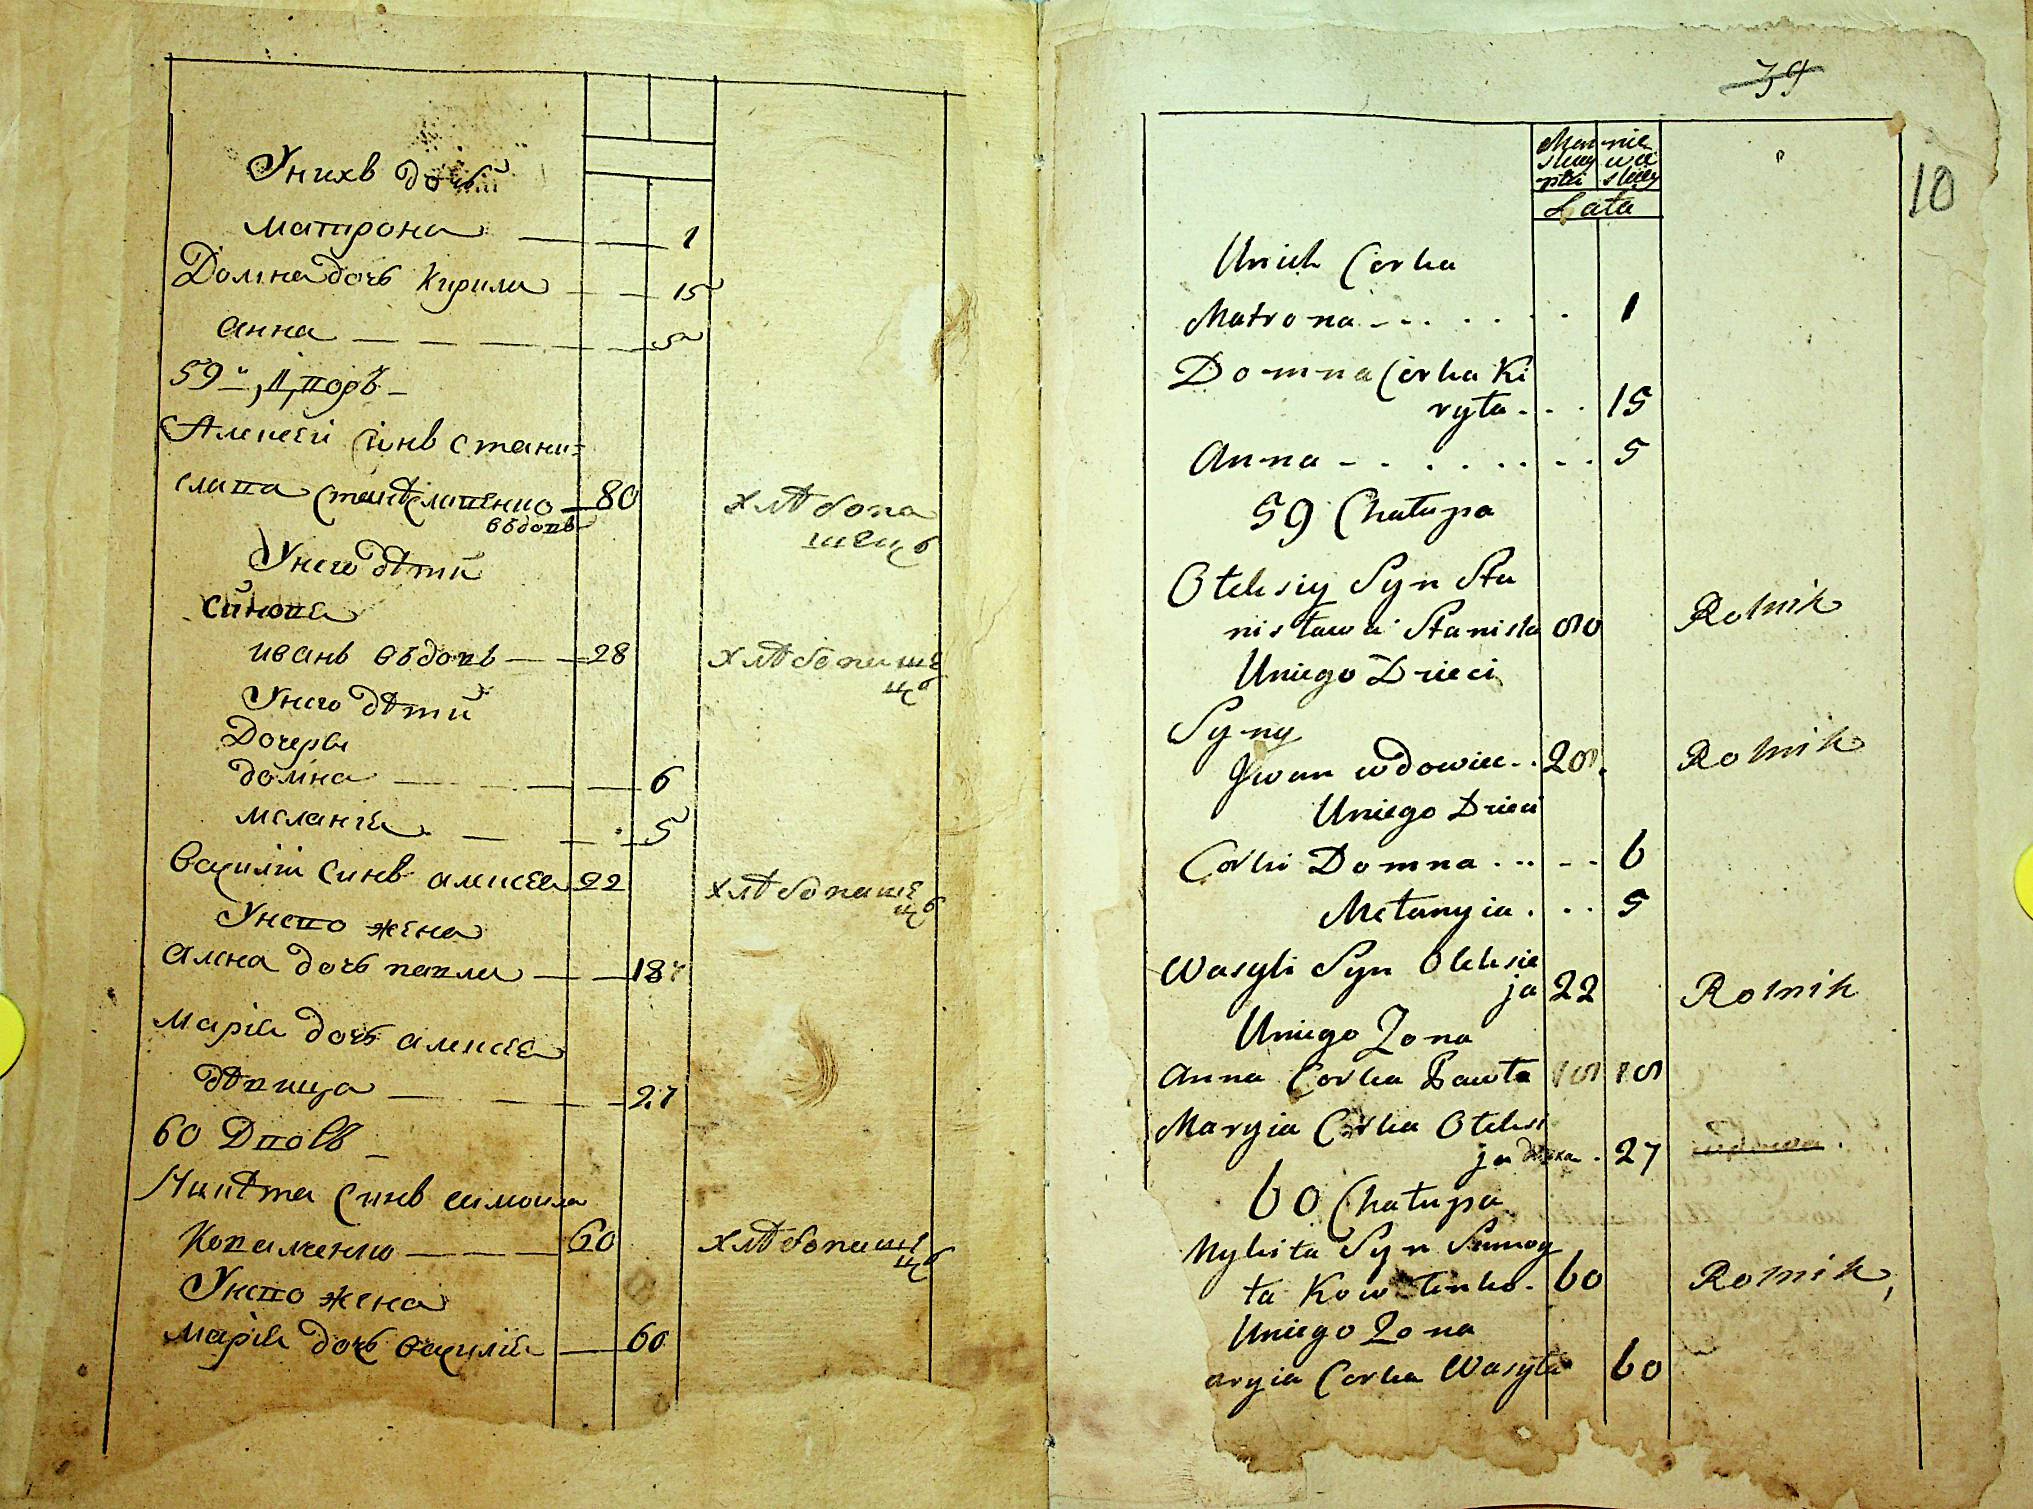 Унихъ дочь
Матрона 1
Домна дочь Кирила 15
Анна 5
59й, Д, поръ
Алексей Синъ Стани=
слава Станѣславенко 80
вѣдовъ
хлѣбопа
шецъ
Унего дѣти
Синове
Иванъ вѣдовъ 28
хлѣбопаше
цъ
Унего дѣти
Дочеры
Домна 6
Меланіе 5
Василій Синъ Алексея 22
хлѣбопаше
цъ
Унево жена
Анна дочь Павла 18
Маріе дочь Алексея
дѣвица 27
60 Дворъ
Никѣта Синъ Симоила
Коваленко 60
хлѣбопаше
цъ
Унево жена
Маріе дочь Василіе 60
39
10
Męz nie
skiey wie
płci skiey
Lata
Unich Corka
Matrona 1
Domna Corka Ki
ryła 15
Anna 5
59 Chałupa
Oleksiy Syn Sta
nisława Stanisła 80 Rolnik
Uniego Dzieci
Syny
Jwan wdowiec 28 Rolnik
Uniego Dzieci
Corki Domna 6
Mełanyia 5
Wasyli Syn Oleksie
ja 22 Rolnik
Uniego Zona
Anna Corka Pawła 18 18
Maryia Corka Oleksi
ja 27
60 Chałupa
Mykita Syn Samoy
ła Kowalenko 60 Rolnik
Uniego Zona
aryia Corka Wasyla 60